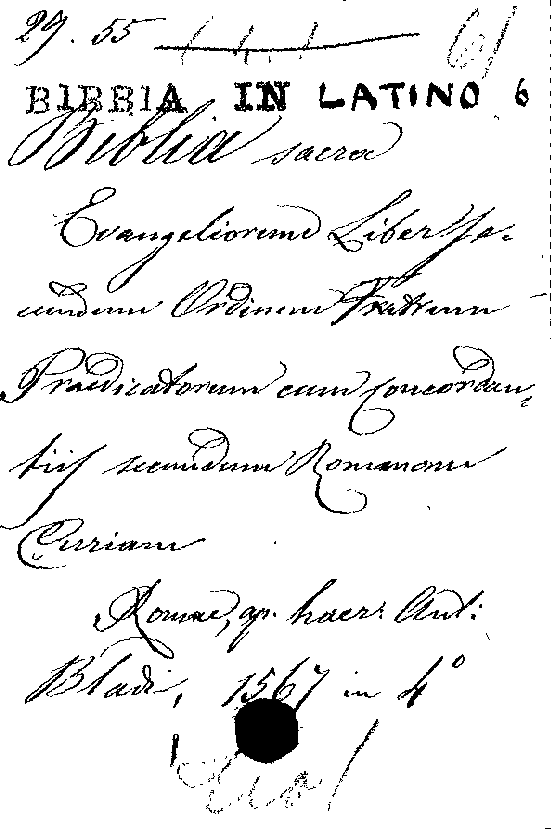 29. 55
BIBBIA IN LATINO 6
Biblia sacra
Evangeliorum Liber se-
cundum Ordinem Fratrum
Praedicatorum cum Concordan-
tiis secundum Romanam
Curiam
Romae, ap. haer. Ant:
Bladi, 1567 in 4°